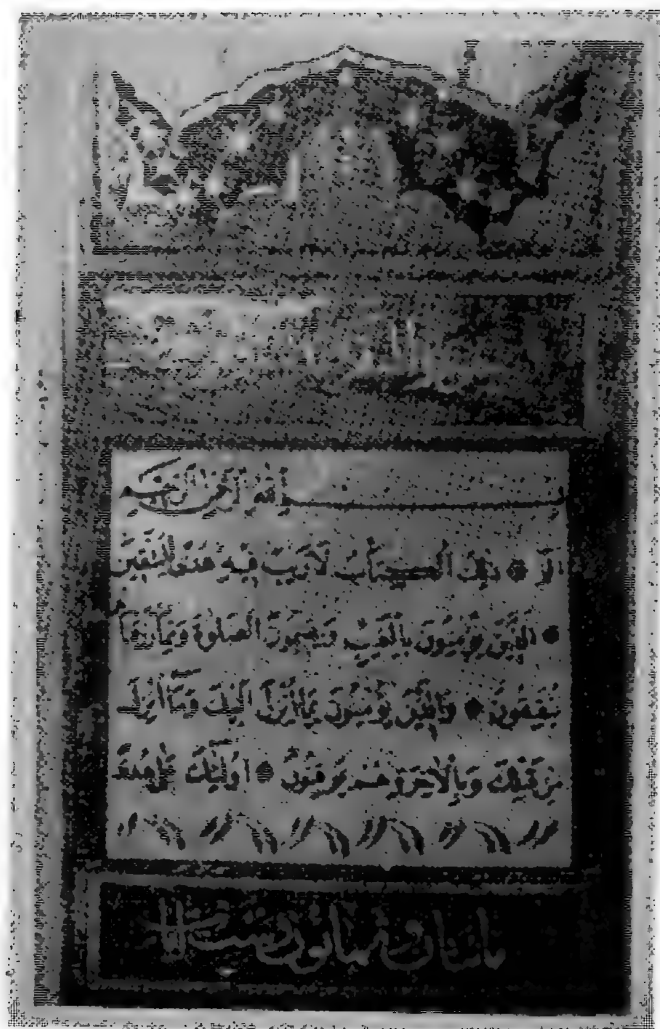 بسم الله الرحمن الرحيم
الم ذلك الكتاب لا ريب فيه هدى للمتقين
الذين يؤمنون بالغيب ويقيمون الصلوة ومما رزقناهم
ينفقون والذين يؤمنون بما انزل اليك وما انزل
من قبلك وبالاخرة هم يوقنون اولئك على هدى
مائتان وثمانون وست آيات